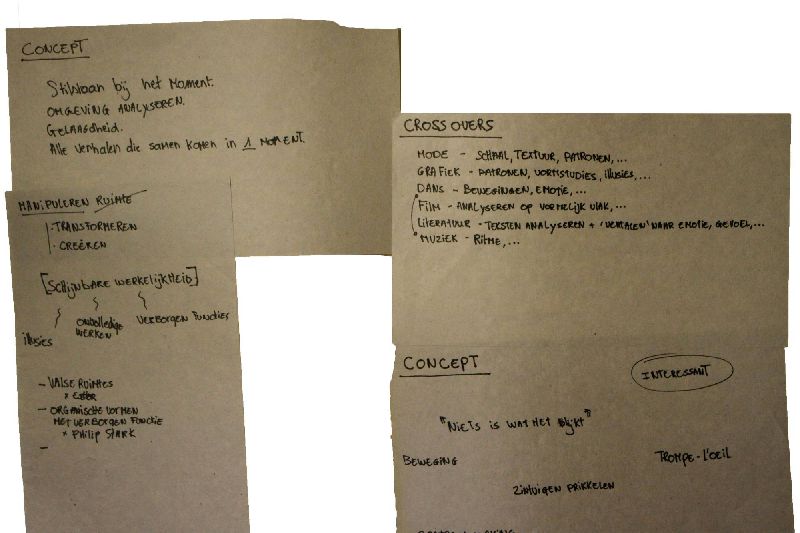 CONCEPT
Stilstaan bij het Moment.
OMGEVING ANALYSEREN.
Gelaagdheid.
Alle verhalen die samen komen in 1 MOMENT.
MANIPULEREN RUIMTE
· TRANSFORMEREN
· CREËREN
[SCHIJNBARE WERKELIJKHEID]
illusies
onvolledige WERKEN
VERBORGEN FUNCTIES
- VALSE RUIMTES
×
- ORGANISCHE VORMEN
MET VERBORGEN FUNCTIE
× PHILIP STARK
-
CROSS OVERS
MODE - SCHAAL, TEXTUUR, PATRONEN, ...
GRAFIEK - PATRONEN, VORMSTUDIES, illusies, ...
DANS - BEWEGINGEN, EMOTIE, ...
FILM - ANALYSEREN OP VORMELIJK VLAK, ...
LITERATUUR - TEKSTEN ANALYSEREN + 'VERTALEN' NAAR EMOTIE, GEVOEL, ...
MUZIEK - RITME, ...
CONCEPT
INTERESSANT
"NIETS IS WAT HET blijkt"
BEWEGING
TROMPE-L'OEIL
ZINTUIGEN PRIKKELEN